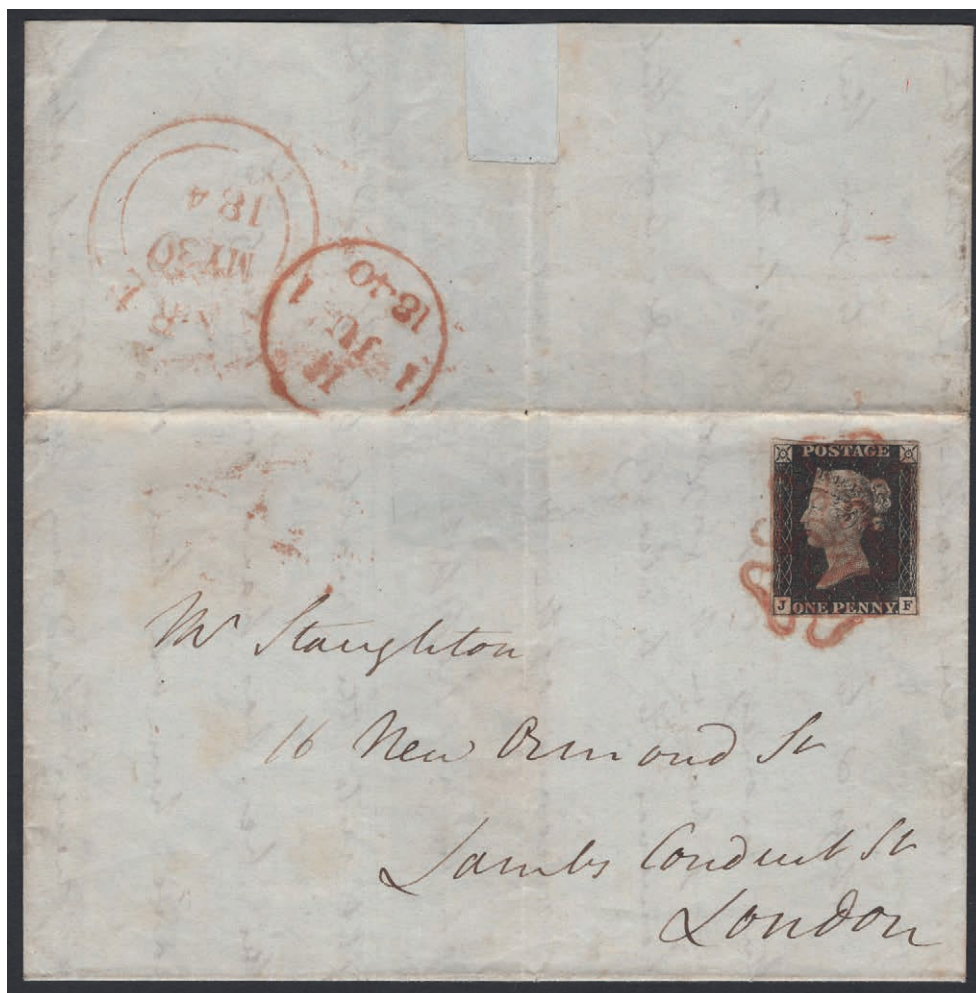 184
MY 30
H
JU
1 1
1840
POSTAGE
J ONE PENNY F
Mr Staughton
16 New Ormond St
Lambs Conduit St
London